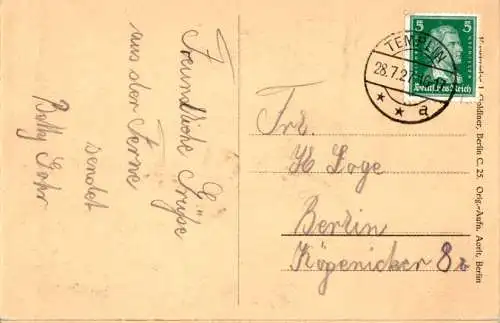 Freundliche Grüße
aus der Ferne
sendet
Frl.
H Loge
Berlin
Köpenicker 8
TEMPLIN
28.7.27
* * a
5 5
Deutsches Reich
Goldiner, Berlin C. 25. Orig.-Aufn. Aorlt. Berlin